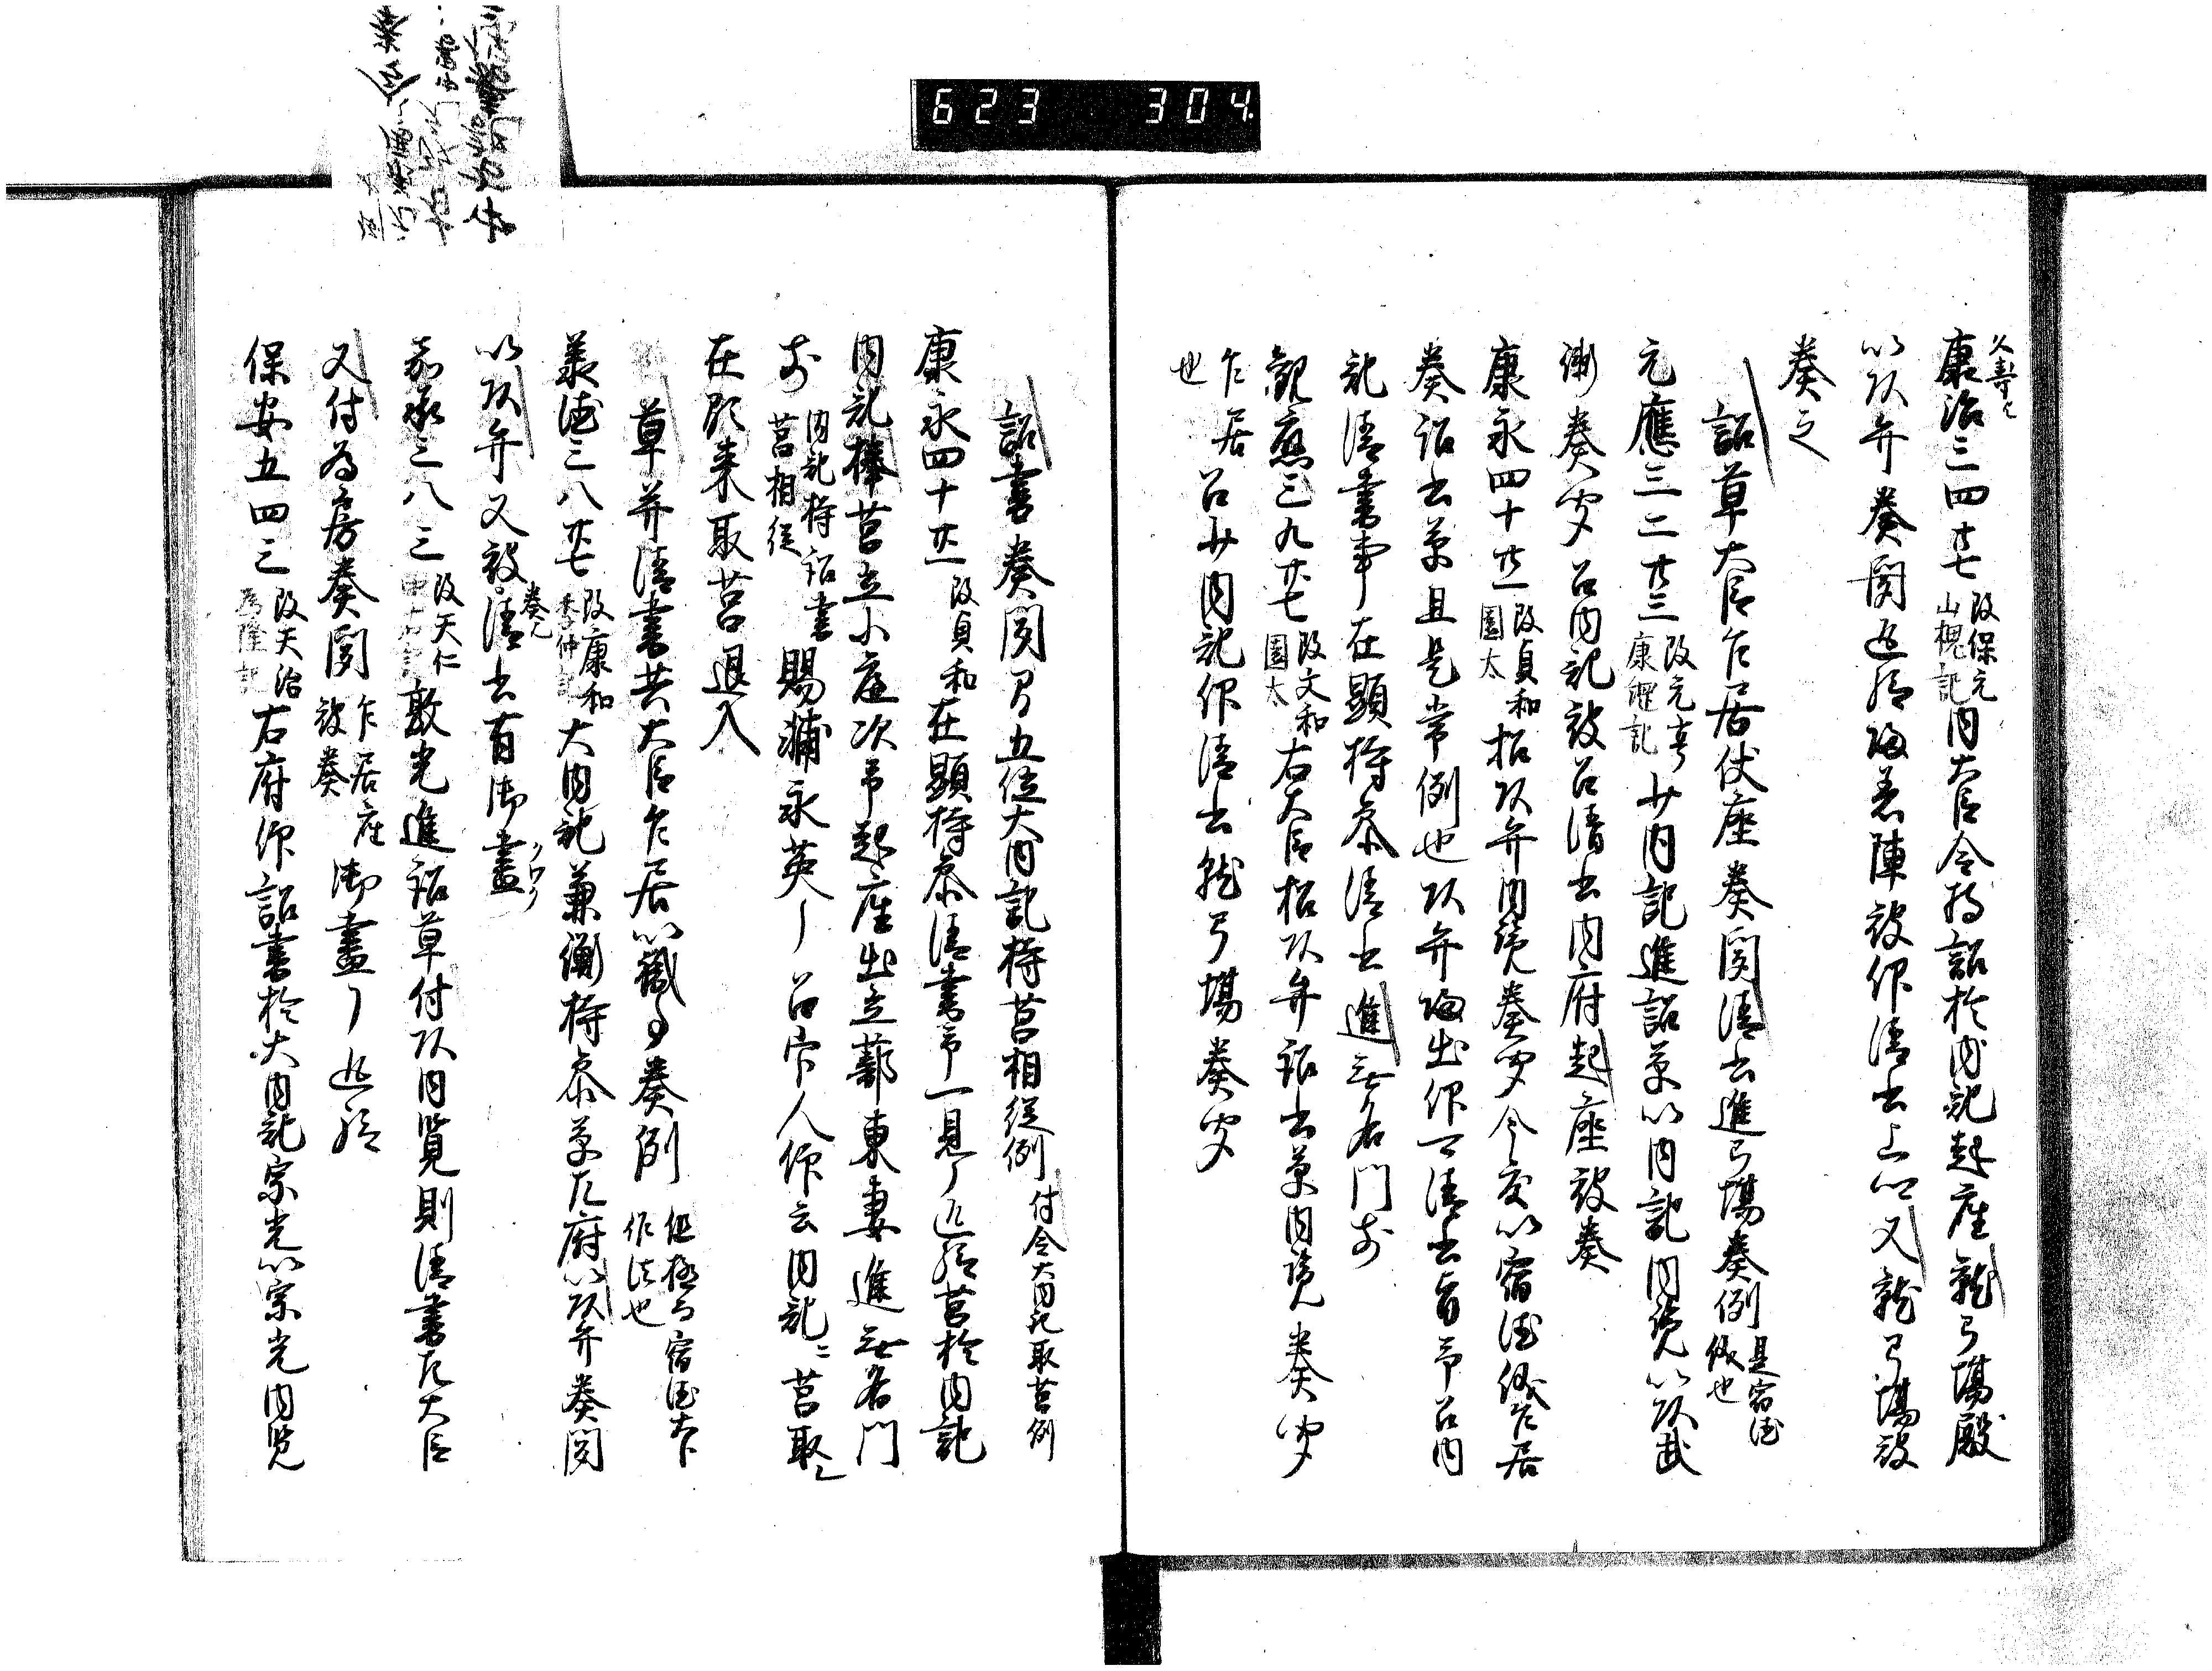 623 304
久寿歟
康治三四廿七 改保元 山槐記 内大臣令持詔於内記起座就弓場殿
以頭弁奏聞返給帰着陣被仰清書上以又就弓場被
奏之
詔草大臣乍居仗座奏聞清書進弓場奏例 是宿徳儀也
元應三二廿三 改元亨 康継記 少内記進詔草以内記内覧以頭武
衛奏聞召内記被召清書内府起座被奏
康永四十廿一 改貞和 園太 招頭弁内覧奏聞今度以宿徳儀乍居
奏詔書草且是常例也頭弁帰出仰可清書旨予召内
記清書事在顕持参清書進無名門前
観應三九廿七 改文和 園太 右大臣招頭弁詔書草内覧奏聞
乍居召少内記仰清書就弓場奏聞
也
詔書奏聞間五位大内記持莒相従例 付令大内記取莒例
康永四十廿一 改貞和 在顕持参清書予一見了返給莒於内記
内記捧莒立小庭次予起座出立蔀東妻進無名門
前 内記持詔書莒相従 賜藤永英了召官人仰云内記ニ莒取之
在顕来取莒退入
草并清書共大臣乍居以職事奏例 但極而宿徳大臣作法也
承徳三八廿七 改康和 季仲記 大内記兼衡持参草左府以頭弁奏聞
以頭弁又被奏清書有御畫
嘉承三八三 改天仁 中右記 敦光進詔草付頭内覧則清書左大臣
又付為房奏聞 乍居座被奏 御畫了返給
保安五四三 改天治 為隆記 右府仰詔書於大内記宗光以宗光内覧